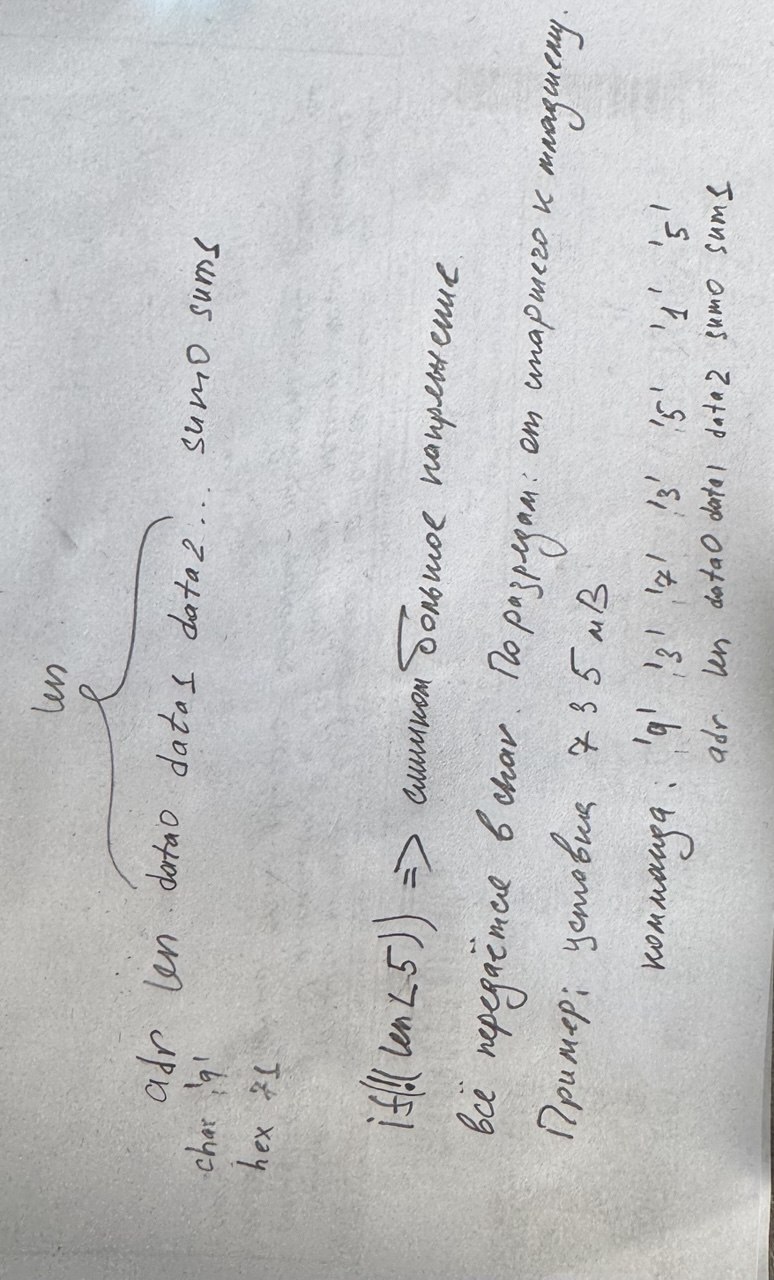 len
adr len data0 data1 data2... sum0 sum1
char 'q'
hex 71
if(!(len<5)) => слишком большое напряжение
всё передаётся в char. По разрядам: от старшего к младшему.
Пример: уставка 735 мВ
комманда: 'q' '3' '7' '3' '5' '1' '5'
adr len data0 data1 data2 sum0 sum1